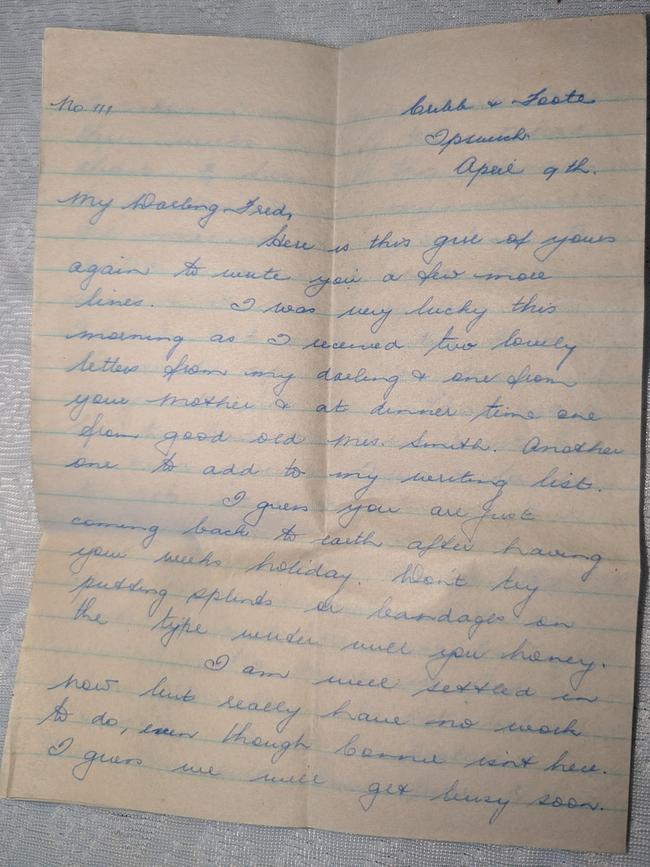 No 111
Cribb & Foote
Ipswich
April 9th.
My Darling Fred,
Here is this girl of yours
again to write you a few more
lines. I was very lucky this
morning as I received two lovely
letters from my darling & one from
your Mother & at dinner time one
from good old Mrs. Smith. Another
one to add to my writing list.
I guess you are just
coming back to earth after having
your weeks holiday. Won't try
putting splints or bandages on
the type writer will you honey.
I am well settled in
now but really have no work
to do, even though Connie isn't here.
I guess we will get busy soon.